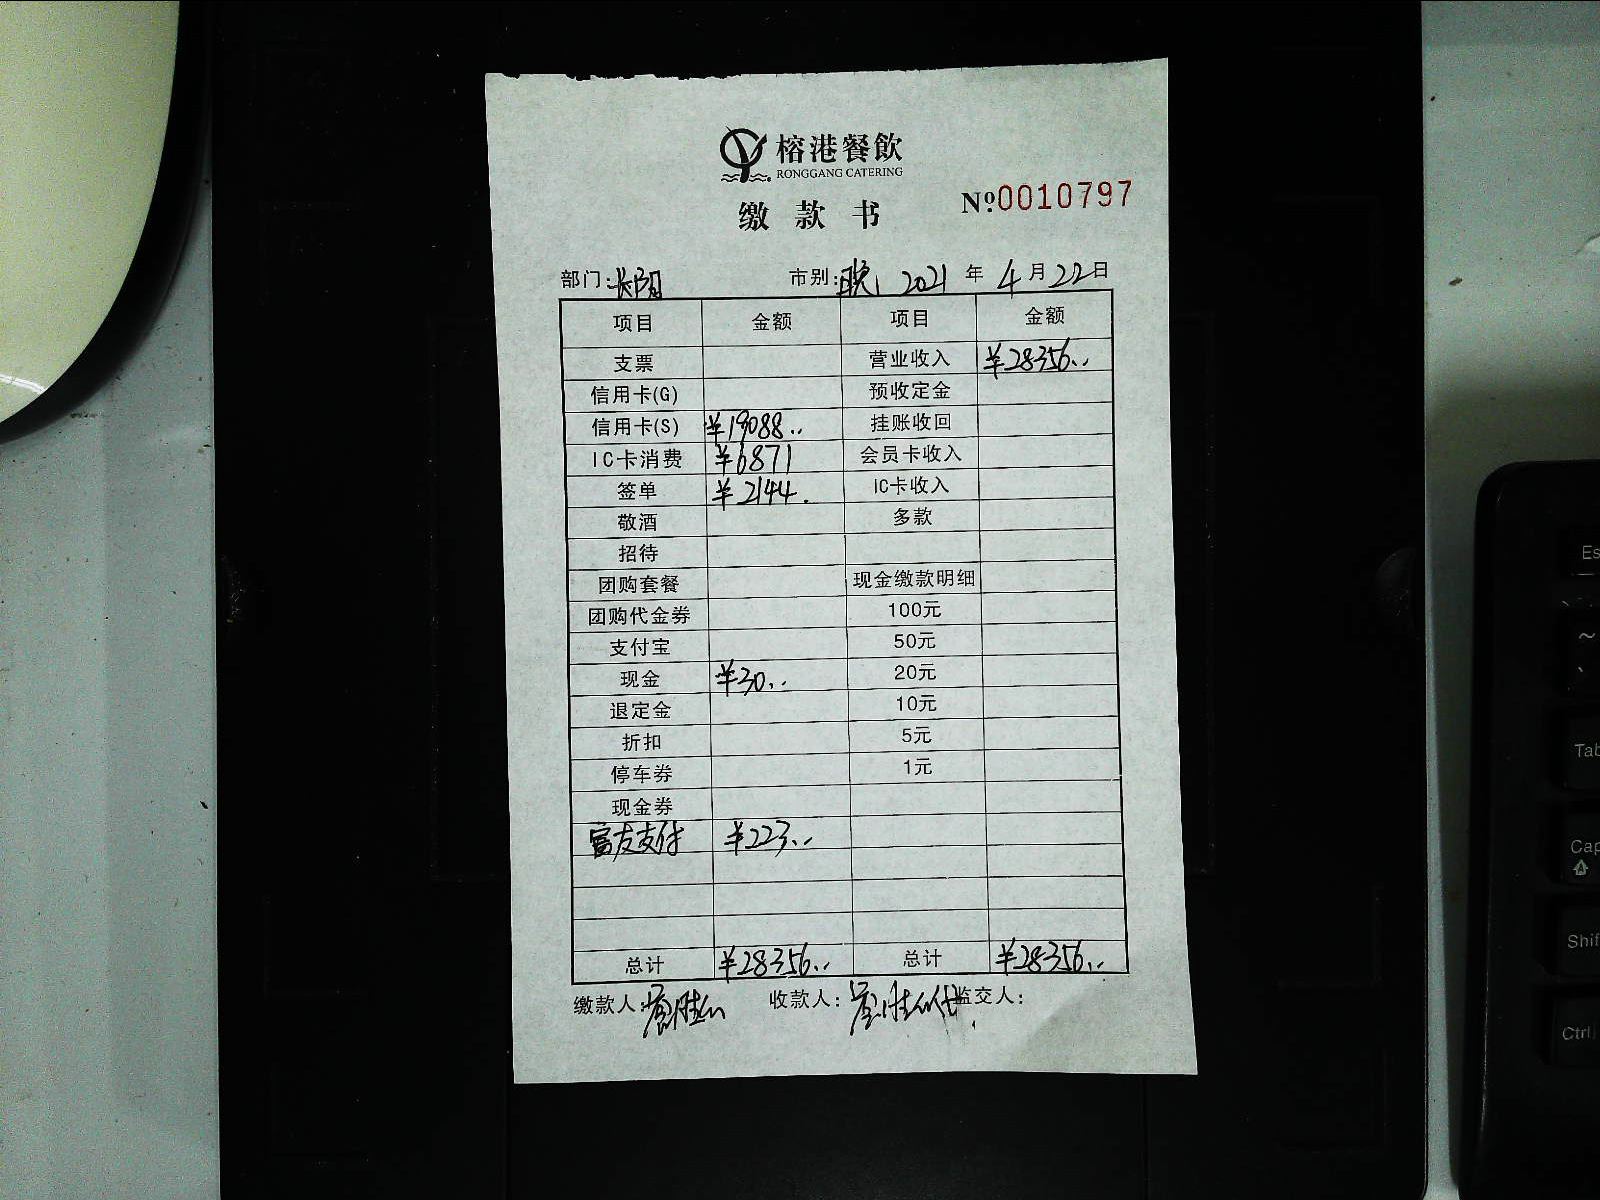 榕港餐飲
RONGGANG CATERING
缴款书
Nº.0010797
部门：长阳 市别：晚 2021年4月22日
项目 金额 项目 金额
支票 营业收入 ¥28356..
信用卡(G) 预收定金
信用卡(S) ¥19088.. 挂账收回
IC卡消费 ¥6871 会员卡收入
签单 ¥2144. IC卡收入
敬酒 多款
招待
团购套餐 现金缴款明细
团购代金券 100元
支付宝 50元
现金 ¥30.. 20元
退定金 10元
折扣 5元
停车券 1元
现金券
富友支付 ¥223..
总计 ¥28356.. 总计 ¥28356..
缴款人： 收款人： 监交人：
Es
~
、
Tab
Cap
Shif
Ctrl